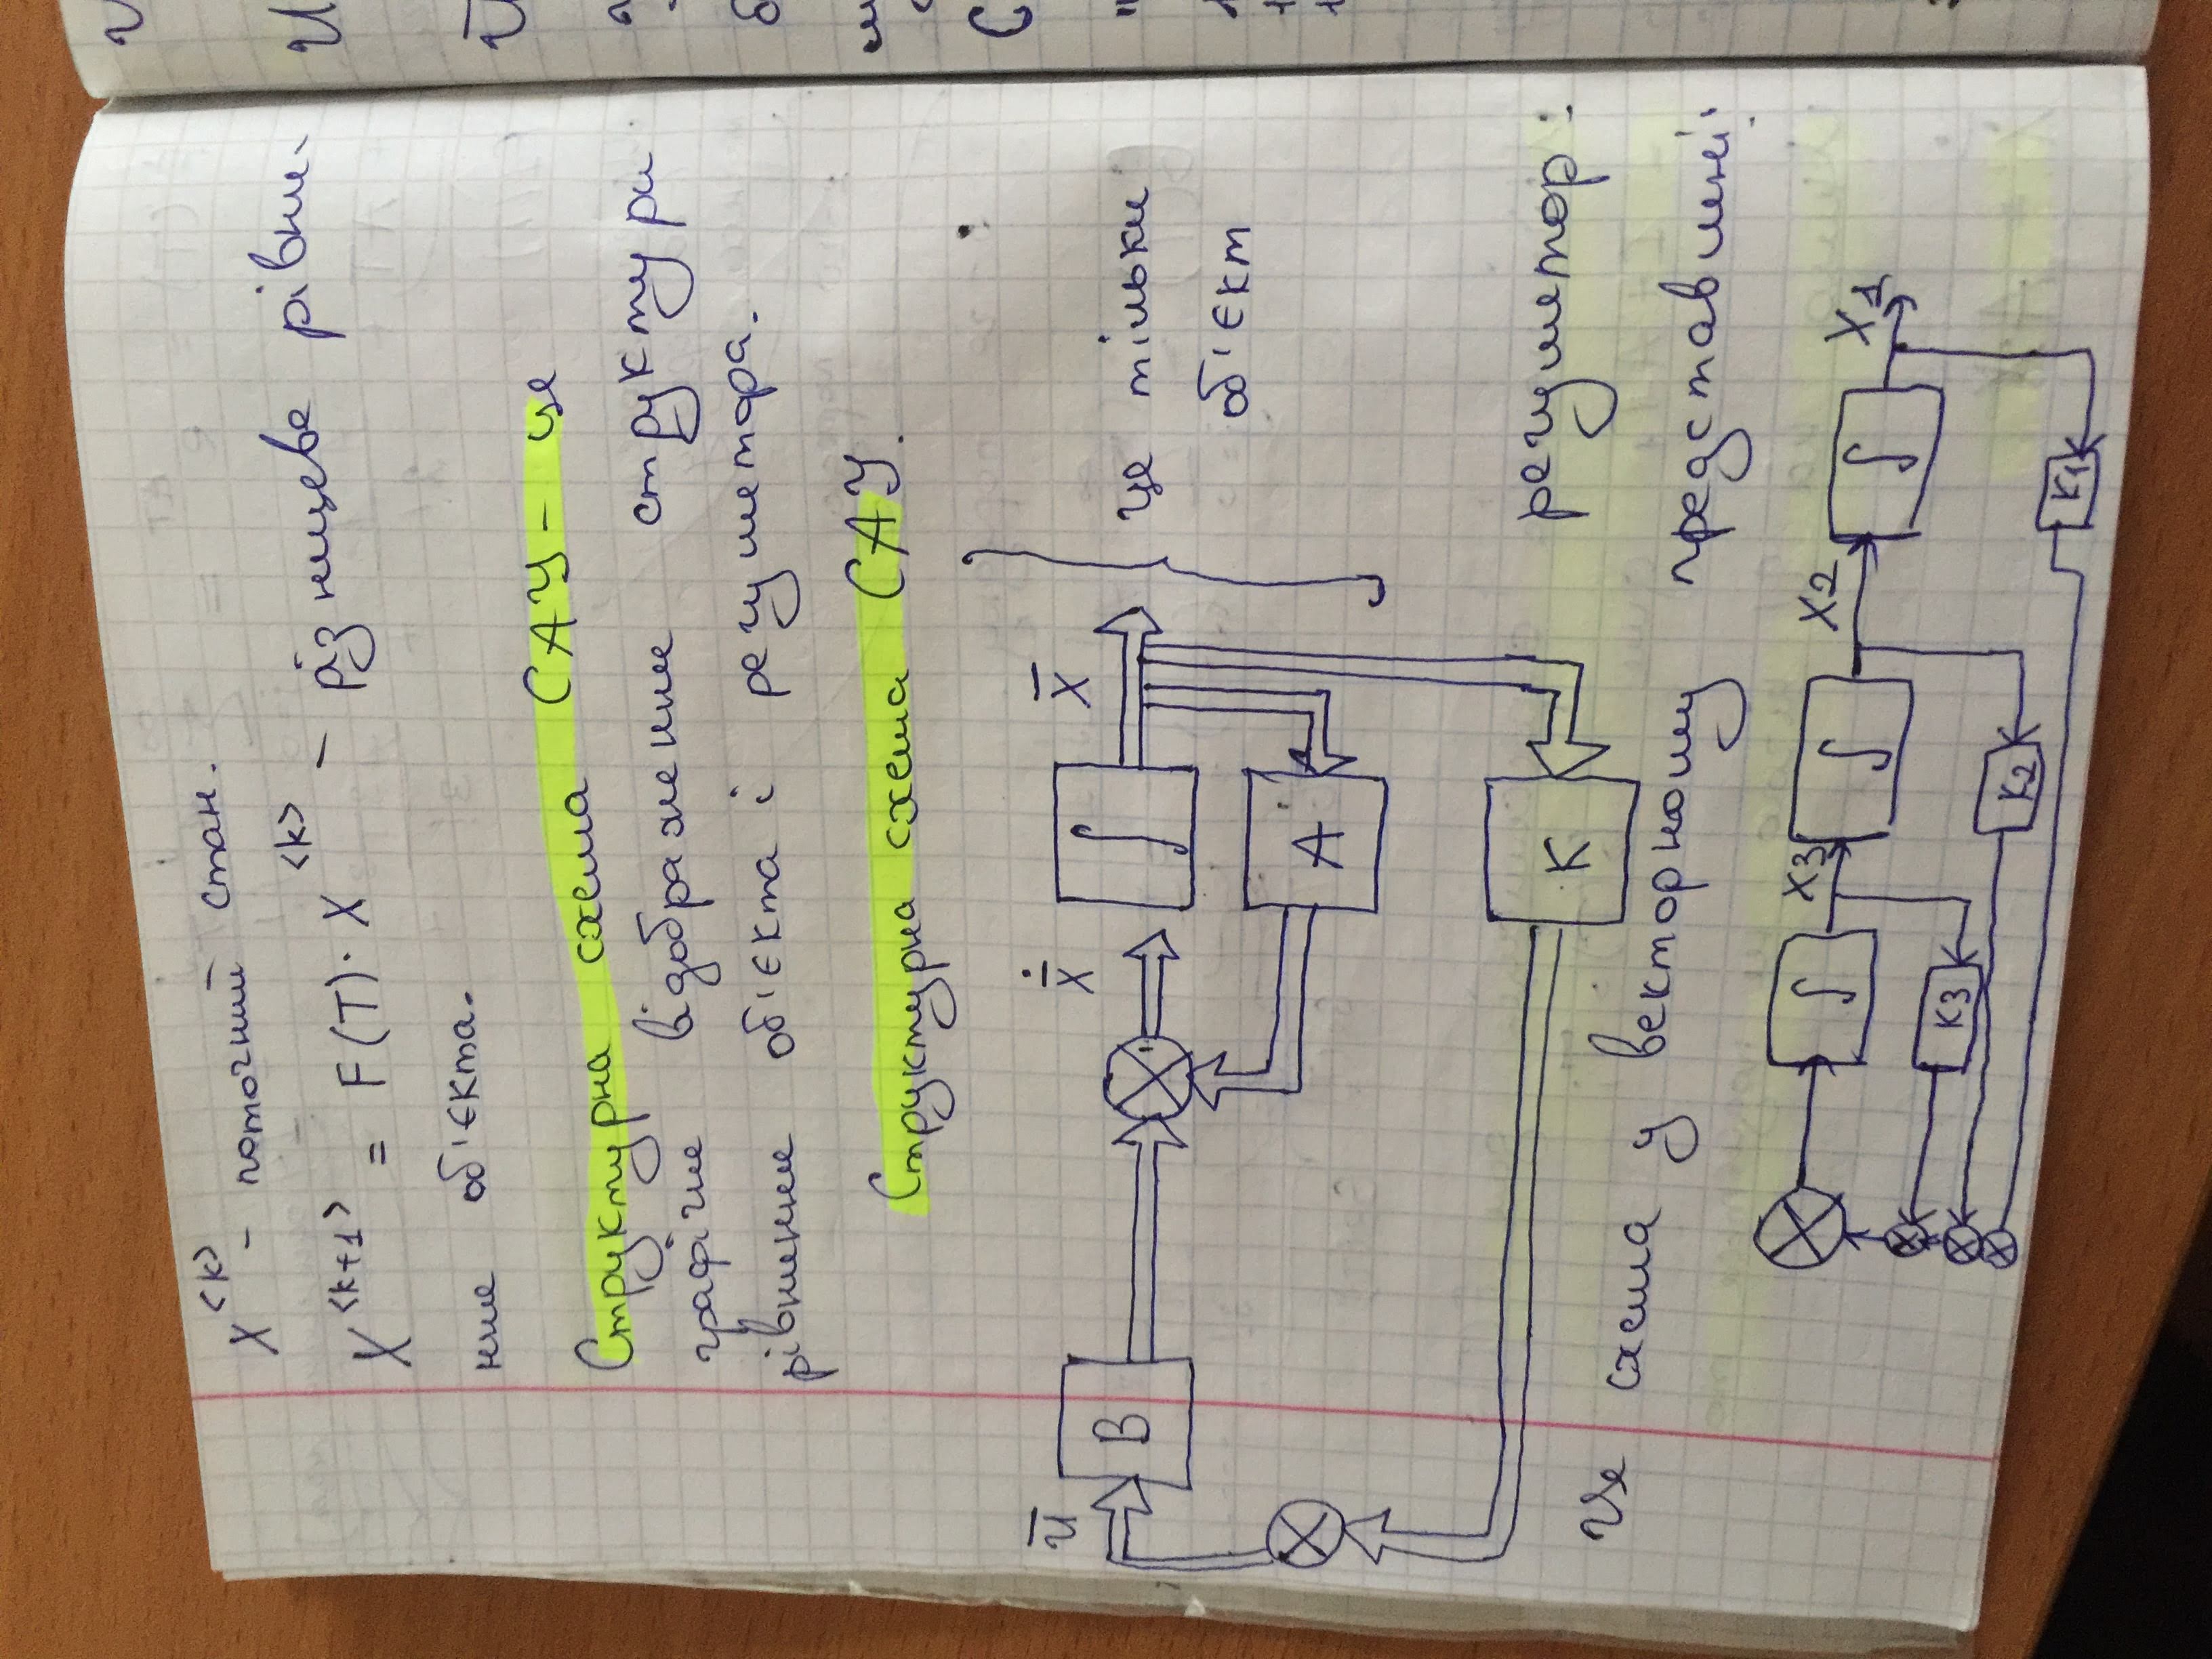 X<k> - поточний стан.
X<k+1> = F(T)·X<k> - різницеве рівня-
ння об'єкта.
Структурна схема САУ - це
графічне відображення структури
рівняння об'єкта і регулятора.
Структурна схема САУ.
ū B ẋ̄ ∫ x̄
це тільки
об'єкт
A
K
регулятор:
Це схема у векторному представлені:
∫ X3 ∫ X2 ∫ X1
K3
K2
K1